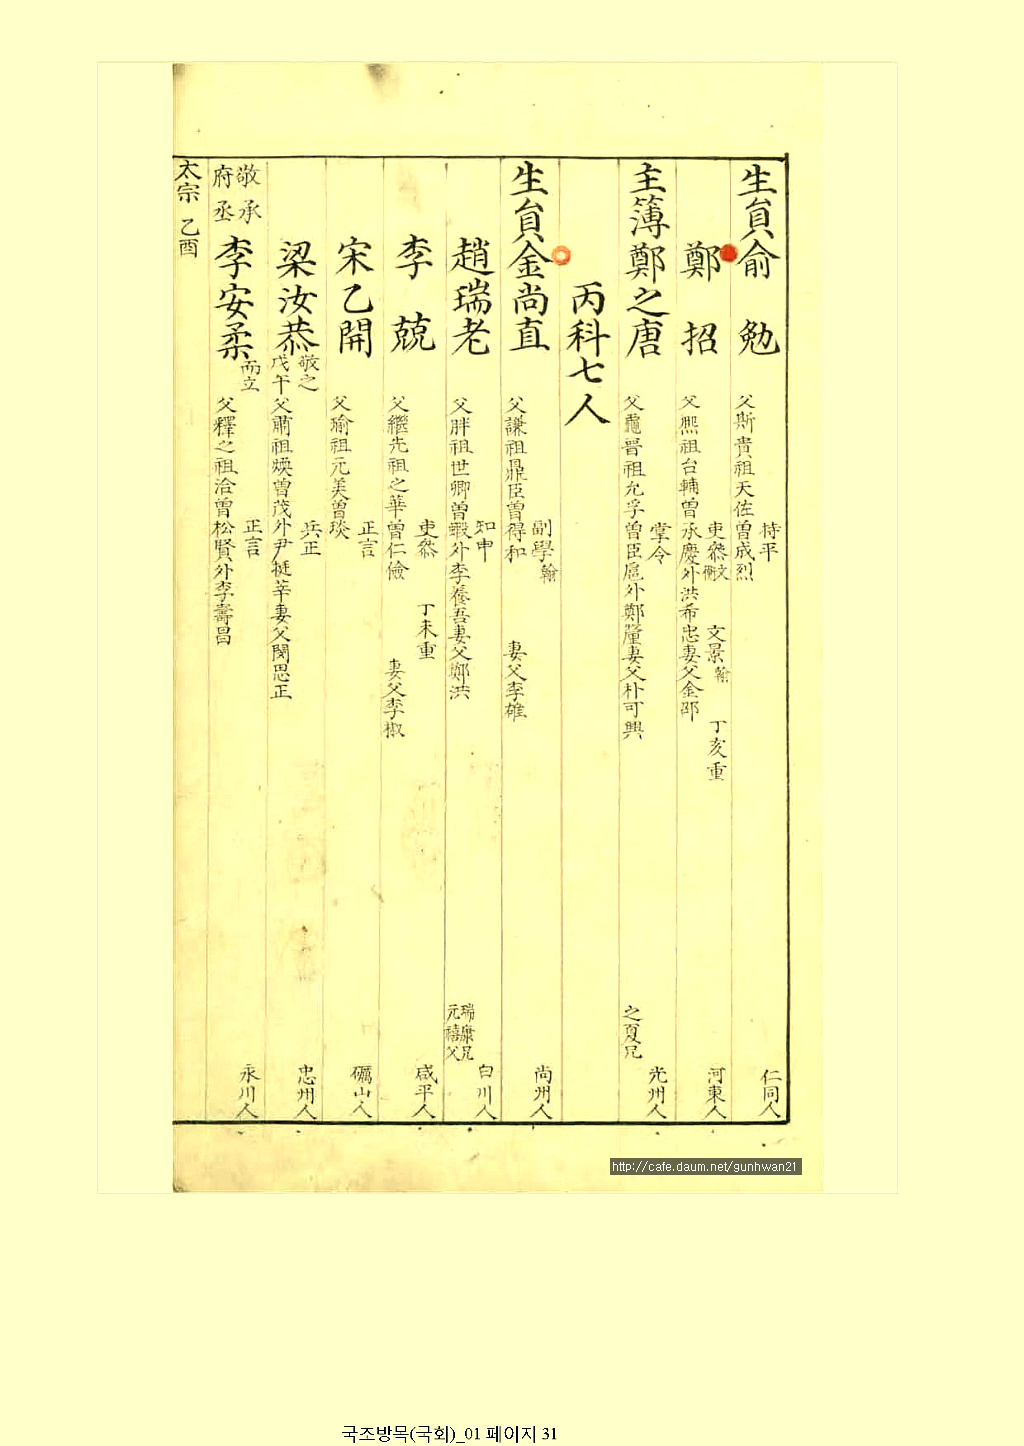 生員俞 勉
持平
父斯貴祖天佐曽成烈
仁同人
鄭 招
吏叅 文衡 文景 丁亥重
父熙祖台輔曽承慶外洪希忠妻父金邵
河東人
主簿鄭之唐
掌令
父龜晋祖允孚曽臣扈外鄭 妻父朴可興
之夏兄
光州人
丙科七人
生員金尚直
副學
父謙祖鼎臣曽得和 妻父李雄
尚州人
趙瑞老
知申
父胖祖世卿曽 外李養吾妻父鄭洪
瑞康兄
元禧父
白川人
李 兢
吏叅 丁未重
父繼先祖之華曽仁儉 妻父李椒
咸平人
宋乙開
正言
父瑜祖元美曽琰
礪山人
梁汝恭
敬之
戊午
兵正
父肅祖煐曽茂外尹挺莘妻父閔思正
忠州人
敬承
府丞
李安柔
而立
正言
父釋之祖洽曽松賢外李壽昌
永川人
太宗 乙酉
http://cafe.daum.net/gunhwan21
국조방목(국회)_01 페이지 31